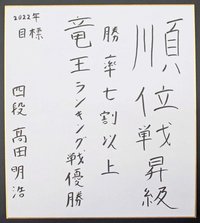 順位戦昇級
勝率七割以上
竜王ランキング戦優勝
2022年
目標
四段 高田明浩